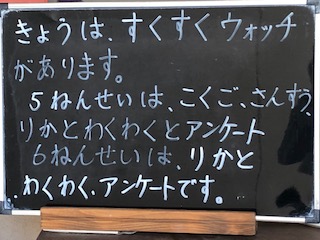 きょうは、すくすくウォッチ
があります。
5ねんせいは、こくご、さんすう、
りかとわくわくとアンケート
6ねんせいは、りかと
わくわく、アンケートです。